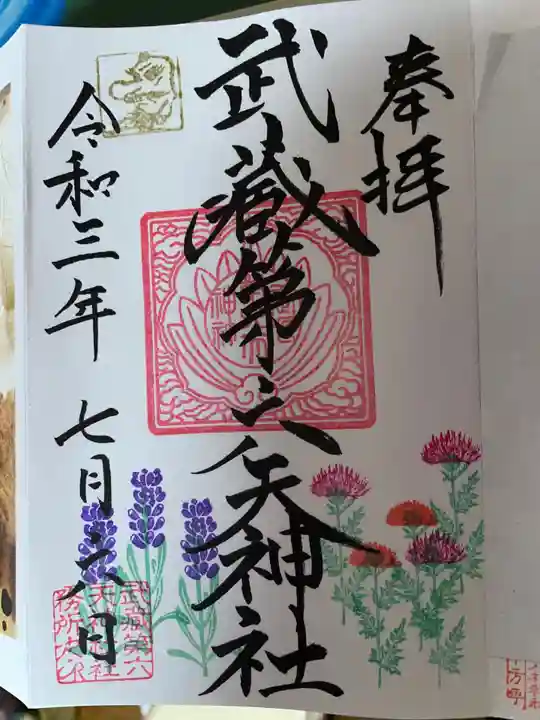 奉拝
武蔵第六天神社
令和三年 七月六日
武蔵第六
天神社社
務所之印